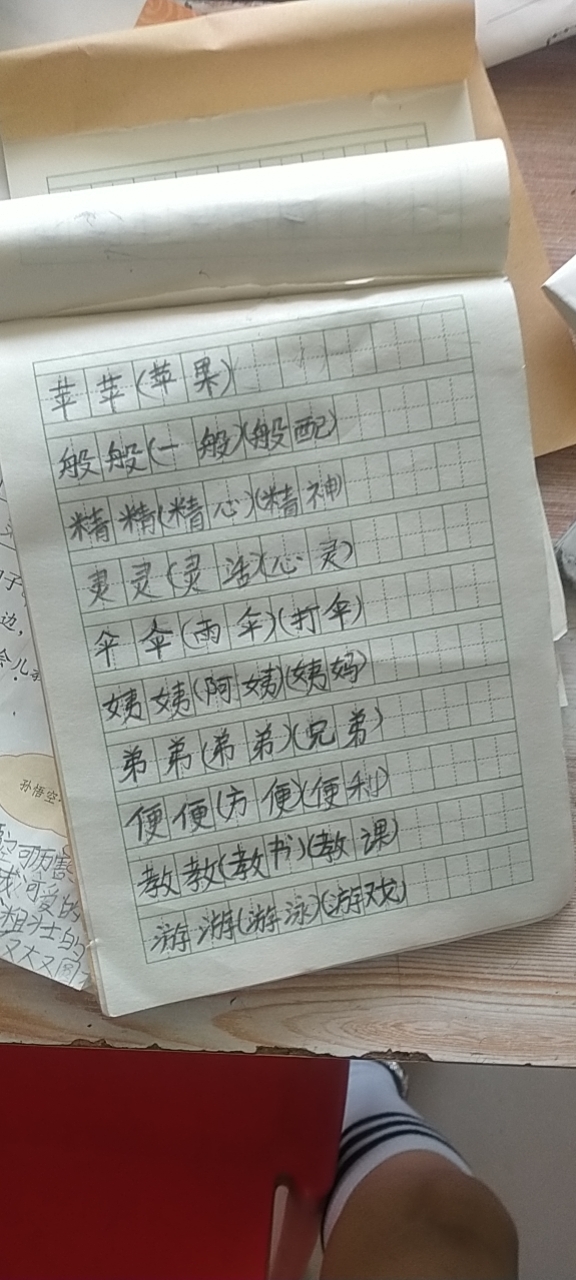 苹苹(苹果)
般般(一般)(般配)
精精(精心)(精神)
灵灵(灵活)(心灵)
伞伞(雨伞)(打伞)
姨姨(阿姨)(姨妈)
弟弟(弟弟)(兄弟)
便便(方便)(便利)
教教(教书)(教课)
游游(游泳)(游戏)
边,
孙悟空
可厉害
可爱的
粗壮的
又大又圆